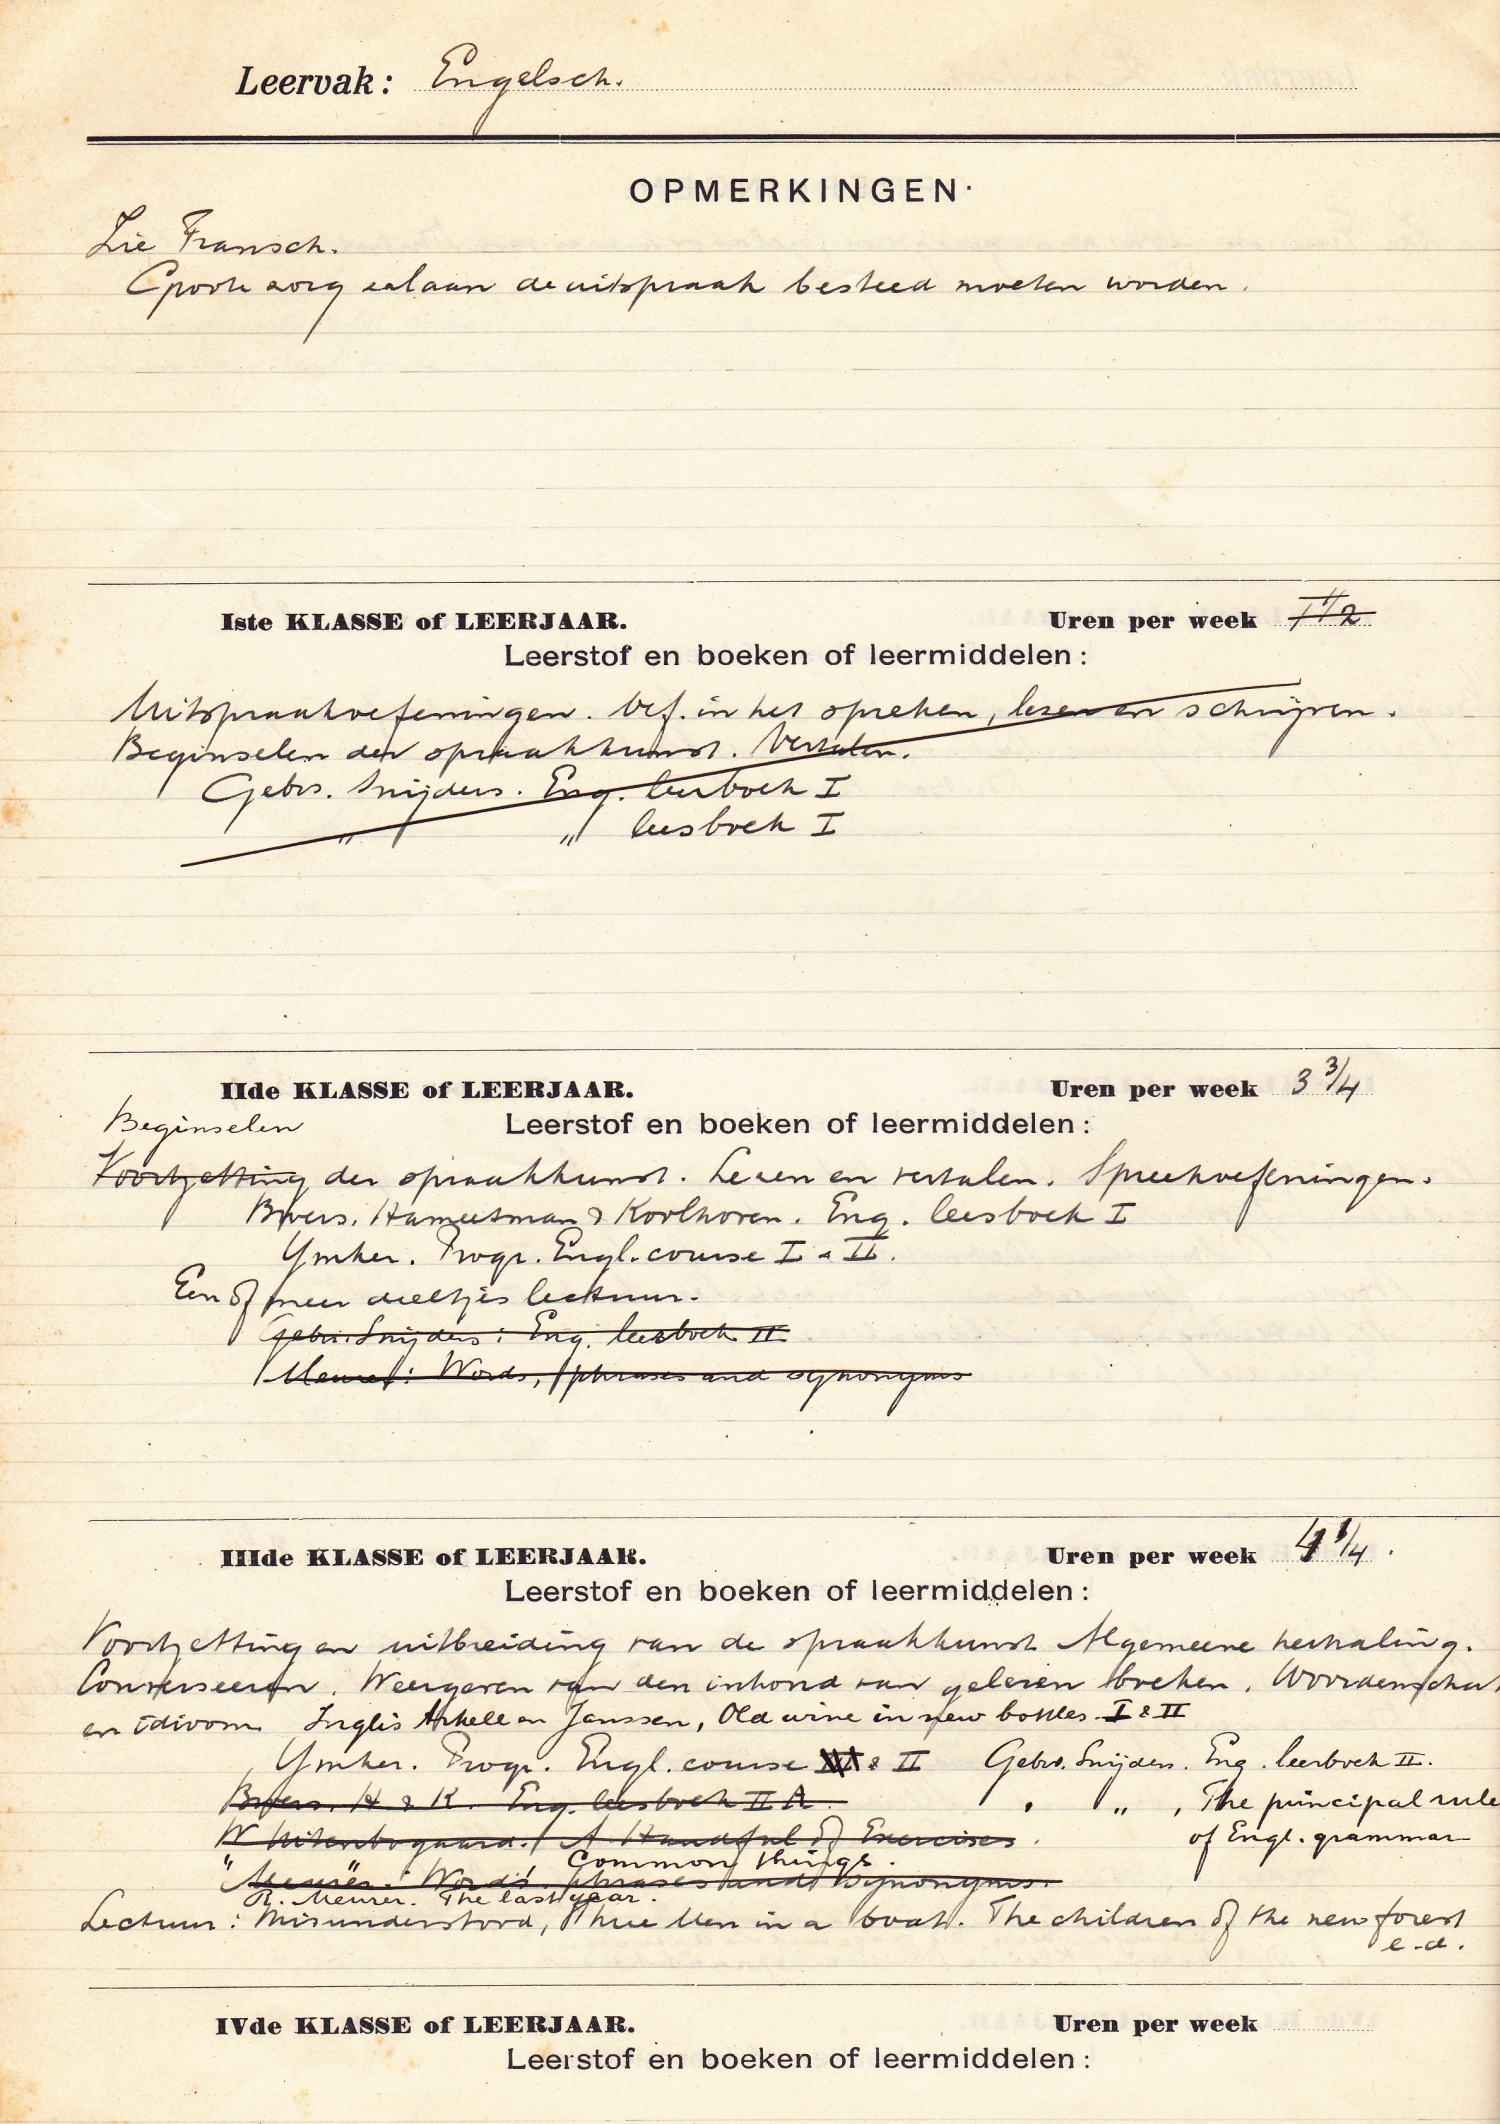 Leervak: Engelsch.
OPMERKINGEN.
Zie Fransch.
Groote zorg zal aan de uitspraak besteed moeten worden.
Iste KLASSE of LEERJAAR. Uren per week 1 1/2
Leerstof en boeken of leermiddelen:
Uitspraakoefeningen. Oef. in het spreken, lezen en schrijven.
Beginselen der spraakkunst. Vertalen.
Gebrs. Snijders. Eng. leerboek I
„ „ leesboek I
IIde KLASSE of LEERJAAR. Uren per week 3 3/4
Beginselen Leerstof en boeken of leermiddelen:
Voortzetting der spraakkunst. Lezen en vertalen. Spreekoefeningen.
Broers, Hameetman & Koolhoven. Eng. leesboek I
Ymker. Progr. Engl. course I & II.
Een of meer deeltjes lectuur.
Gebrs. Snijders: Eng. leerboek II
Meurer: Words, phrases and synonyms
IIIde KLASSE of LEERJAAR. Uren per week 4 1/4.
Leerstof en boeken of leermiddelen:
Voortzetting en uitbreiding van de spraakkunst Algemeene herhaling.
Converseeren. Weergeven van den inhoud van gelezen boeken. Woordenschat
en idioom. Inglis Arkell en Janssen, Old wine in new bottles I & II
Ymker. Progr. Engl. course & II Gebrs. Snijders. Eng. leerboek II.
Broers, H & K. Eng. leesboek II A. „ „ , The principal rule
W Uitenbogaard. A Handful of Exercises. of Engl. grammar
„ „ Common things.
Meurer: Words, phrases and Synonyms.
R. Meurer. The last year.
Lectuur: Misunderstood, Three Men in a boat. The children of the new forest
e.d.
IVde KLASSE of LEERJAAR. Uren per week
Leerstof en boeken of leermiddelen: